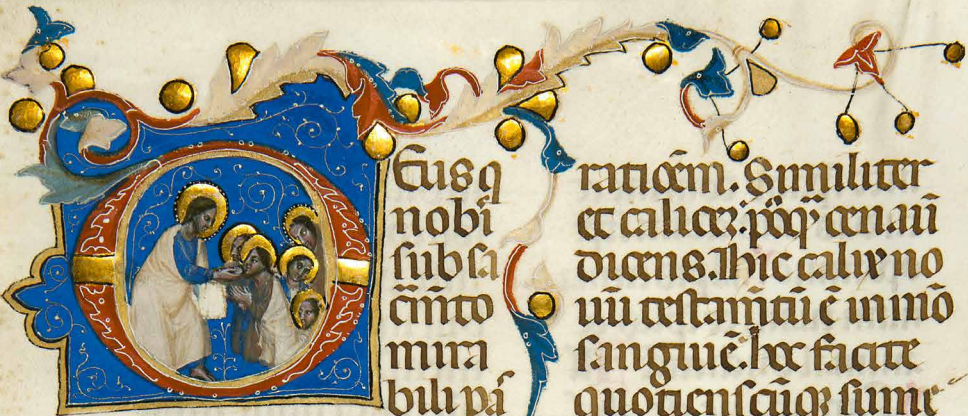 Eus q
nobi
sub sa
c̄m̄to
mira
bili pa
ratioēm. Similiter
et calicez: pꝰq̄ cenauī
dicens. Hic calix no
uū testam̄tū ē in m̄o
sanguiē. hoc facite
quotienscūqꝫ sume